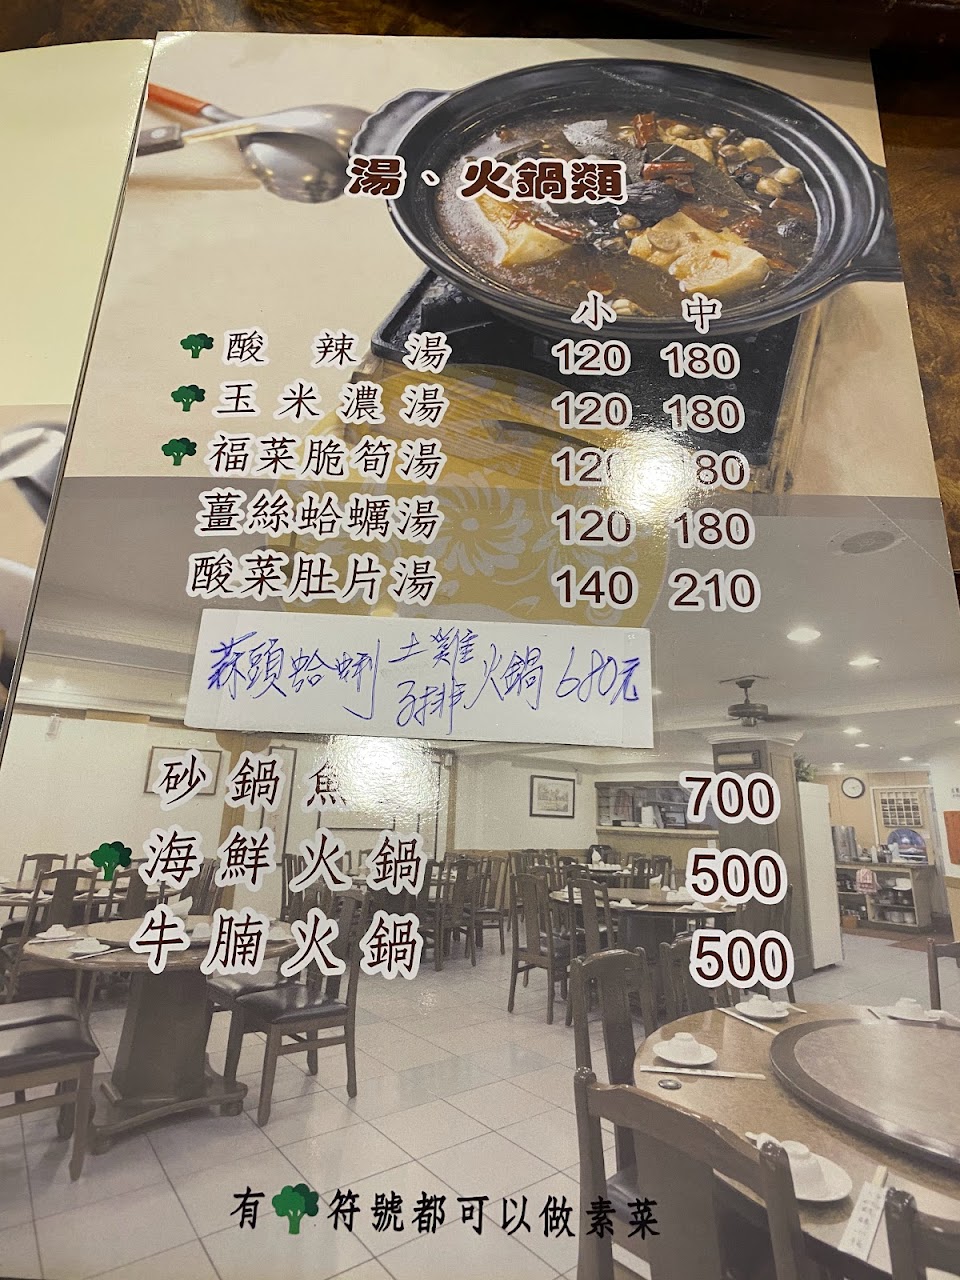 湯、火鍋類
小 中
酸辣湯 120 180
玉米濃湯 120 180
福菜脆筍湯 120 180
薑絲蛤蠣湯 120 180
酸菜肚片湯 140 210
蒜頭蛤蜊土雞火鍋 680元
砂鍋魚 700
海鮮火鍋 500
牛腩火鍋 500
有 符號都可以做素菜